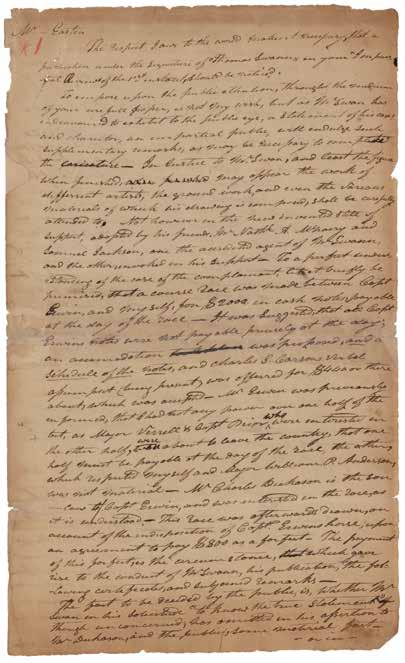 Mr. Easten
The respect I owe to the world makes it necessary, that a
publication under the signature of Thomas Swann, in your Impar-
tial Review of the 1st instant, should be noticed.
To impose upon the public attention, through the medium
of your useful paper, is not my wish, but as Mr Swan has
endeavoured to exhibit to the public eye, a statement of his case
and character, an impartial public will indulge such
supplementary remarks, as may be necessary to complete
the caricature — In Justice to Mr Swann, and least the figure
when finished, may appear the work of
different artists, the ground work and even the various
materials of which his drawing is composed, shall be carefully
attended to, not however in the new invented stile of
support, adopted by his friends, Mr Nathl. A. McNairy and
Samuel Jackson, one the accredited agent of Mr Swann,
and the other invoked in his support — To a perfect under-
standing of the case of the complainant, let it briefly be
premised, that a course race was made between Capt
Ervin, and myself, for $2000 in cash notes, payable
at the day of the race — It was suggested, that as Capt
Ervins notes were not payable precisely at the day,
an accomodation was proposed, and a
schedule of the notes, and Charles S. Carsons verbal
assumpsit (being present) was offered for $400 or there
about, which was assented — Mr Ervin was previously
informed, that I had not any power over one half of the
bet, as Major Verrell & Capt Prior, who were interested in
the other half, were about to leave the country, that one
half must be payable at the day of the race, the other,
which respected myself and Major William P. Anderson,
was not material — Mr Charles Dickason is the son
in-law to Capt Erwin, and was interested in the race, as
it is understood — This race was afterwards drawn, on
account of the indisposition of Capt. Erwins horse, upon
an agreement to pay $800 as a forfeit. The payment
of this forfeit, is the circumstance, which gave
rise to the conduct of Mr Swann, his publication, the fol-
lowing certificates, and subjoined remarks —
The fact to be decided by the public, is, whether Mr
Swan in his solicitude "to know the true statement of
though unconcerned, has omitted in his assertion to
Mr Dickason, and the public, some material part